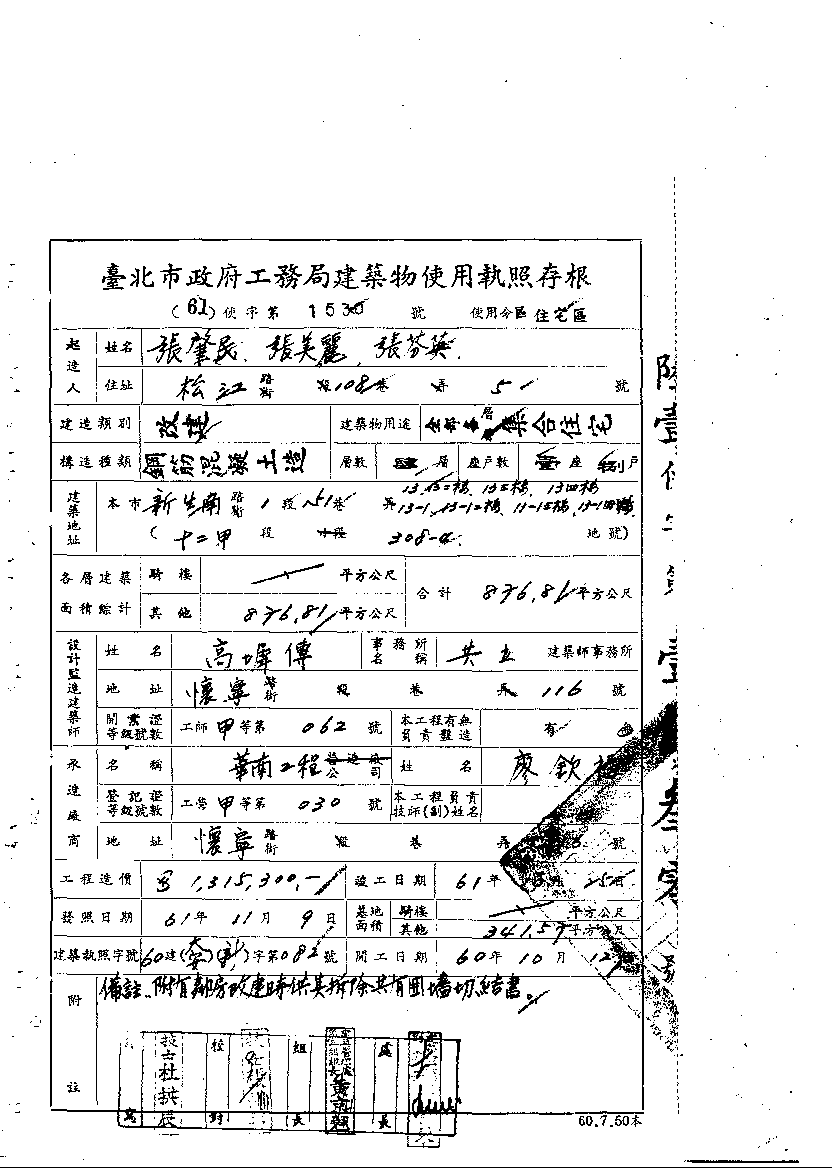 臺北市政府工務局建築物使用執照存根
(61)使字第 1530 號 使用分區 住宅區
起造人 姓名 張肇民、張美麗、張芬英
住址 松江 路街 段 108巷 弄 51 號
建造類別 改建 建築物用途 全部各層 集合住宅
構造種類 鋼筋混凝土造 層數 肆層 座戶數 壹座 捌戶
建築地址 本市 新生南 路街 1段 151巷 弄 13,13-二樓,13三樓,13四樓
13-1,13-1二樓,13-1三樓,13-1四樓
(十二甲 段 小段 308-4 地號)
各層建築面積綜計 騎樓 平方公尺 合計 836.81平方公尺
其他 836.81平方公尺
設計監造建築師 姓名 高墀傳 事務所名稱 共立 建築師事務所
地址 懷寧 路街 段 巷 弄 116 號
開業證等級號數 工師 甲等第 062 號 本工程有無負責監造 有
承造廠商 名稱 華南工程 營造廠公司 姓名 廖欽
登記證等級號數 工營 甲等第 030 號 本工程負責技師(副)姓名
地址 懷寧 路街 段 巷 弄 號
工程造價 1,315,300,- 竣工日期 61年 月 25日
發照日期 61年 11月 9日 基地面積 騎樓 平方公尺
其他 341.57平方公尺
建築執照字號 60建(大安)()字第082號 開工日期 60年 10月 12
附註 備註、附有鄰房改建時供其拆除共有圍墻切結書。
技士杜拱辰 校對 組長 處長
60.7.50本
陸壹使字第壹 叁零號